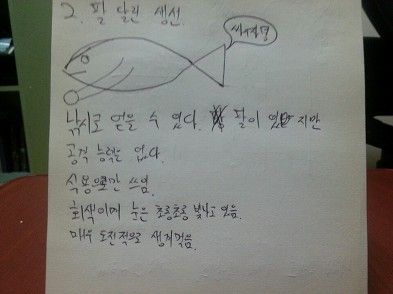 2. 팔 달린 생선.
낚시로 얻을 수 있다. 팔이 있지만
공격 능력은 없다.
식용으로만 쓰임.
회색이며 눈은 초롱초롱 빛나고 있음.
매우 도전적으로 생겨먹음.